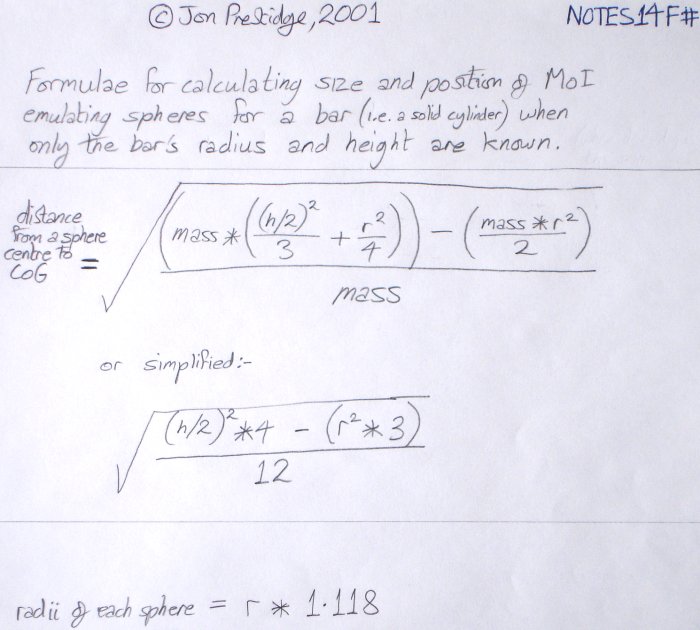 © Jon Prestidge, 2001
NOTES14F#
Formulae for calculating size and position of MoI
emulating spheres for a bar (i.e. a solid cylinder) when
only the bar's radius and height are known.
distance
from a sphere
centre to
CoG =
√(((mass * ((h/2)²/3 + r²/4)) - (mass * r²/2)) / mass)
or simplified:-
√(((h/2)² * 4 - (r² * 3)) / 12)
radii of each sphere = r * 1·118